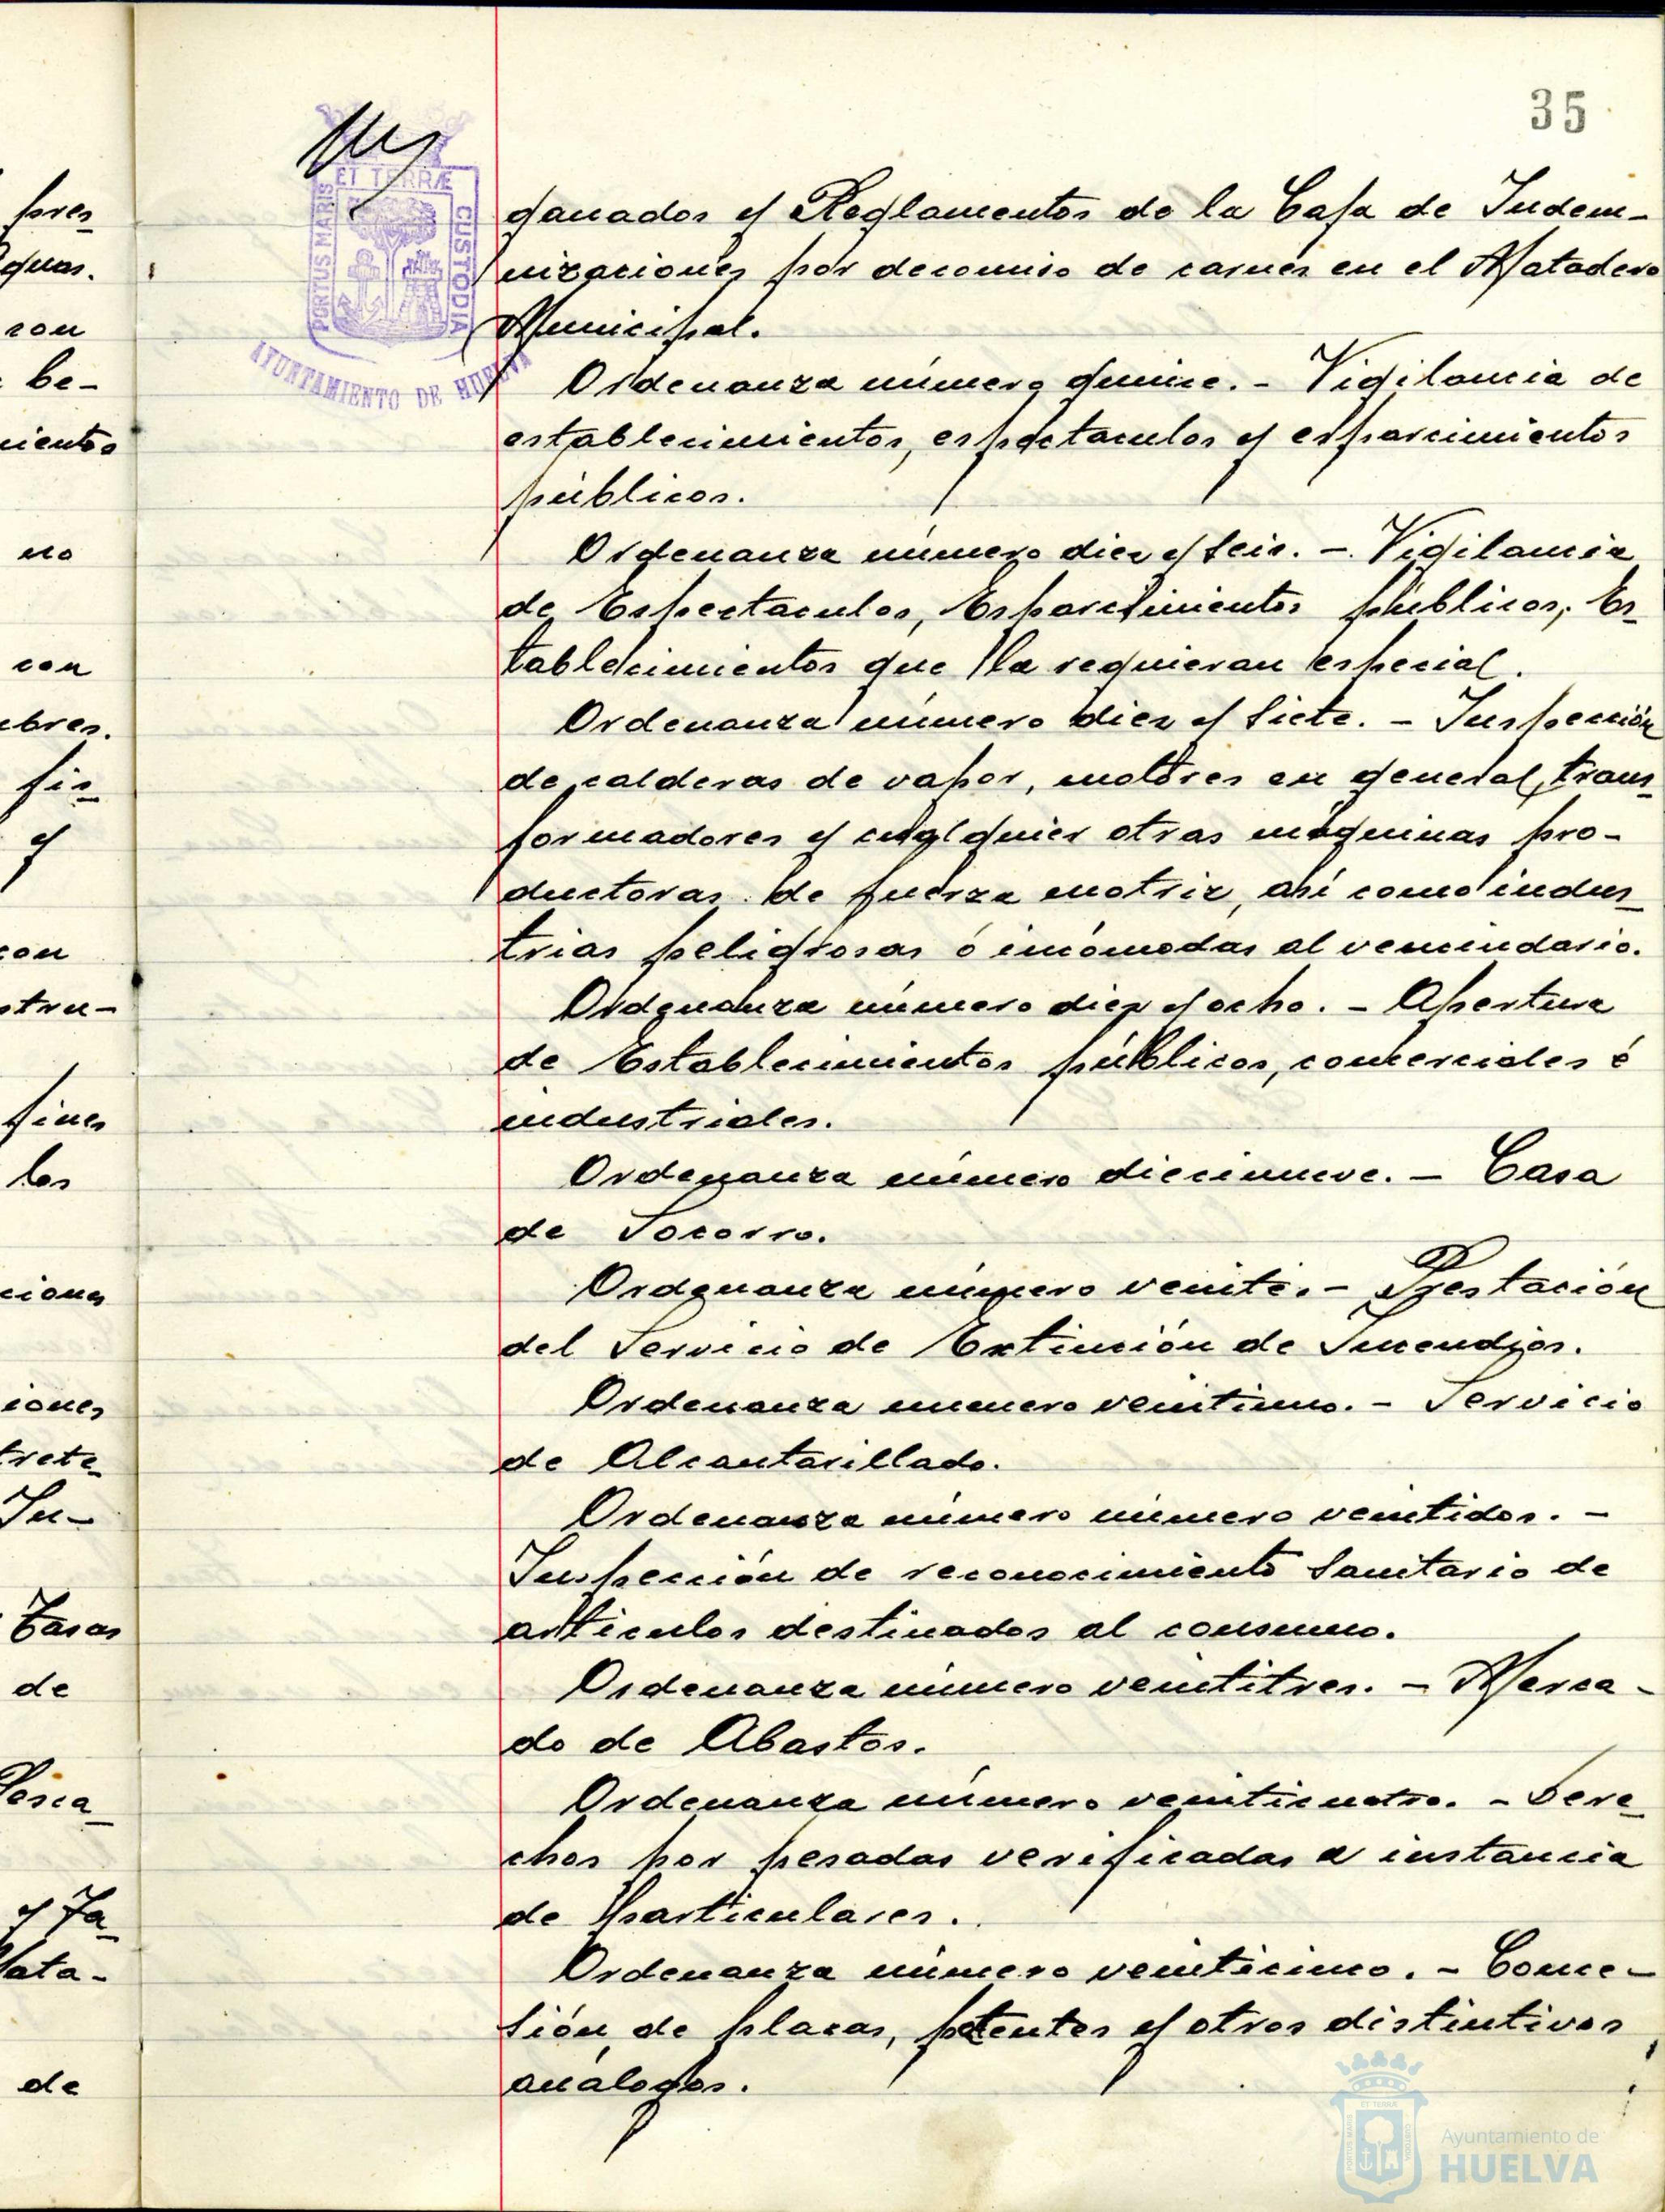 35
ET TERRÆ
PORTUS MARIS
CUSTODIA
AYUNTAMIENTO DE HUELVA
ganados y Reglamentos de la Caja de Indem-
nizaciones por decomiso de carnes en el Matadero
Municipal.
Ordenanza número quince. - Vigilancia de
establecimientos, espectaculos y esparcimientos
públicos.
Ordenanza número diez y seis. - Vigilancia
de Espectaculos, Esparcimientos públicos, Es-
tablecimientos que la requieran especial.
Ordenanza número diez y siete. - Inspección
de calderas de vapor, motores en general, trans-
formadores y cualquier otras máquinas pro-
ductoras de fuerza motriz, así como indus-
trias peligrosas ó incómodas al vecindario.
Ordenanza número diez y ocho. - Apertura
de Establecimientos públicos, comerciales é
industriales.
Ordenanza número diecinueve. - Casa
de Socorro.
Ordenanza número veinte. - Prestación
del Servicio de Extinción de Incendios.
Ordenanza numero veintiuno. - Servicio
de Alcantarillado.
Ordenanza número número veintidos. -
Inspección de reconocimiento sanitario de
artículos destinados al consumo.
Ordenanza número veintitres. - Merca-
do de Abastos.
Ordenanza número veinticuatro. - Dere-
chos por pesadas verificadas a instancia
de particulares.
Ordenanza número veinticinco. - Conce-
sión de placas, patentes y otros distintivos
análogos.
pres-
con
be-
no
con
y
con
stru-
fines
los
ciones
iones
In-
Tasas
de
Pesca-
de
Ayuntamiento de
HUELVA